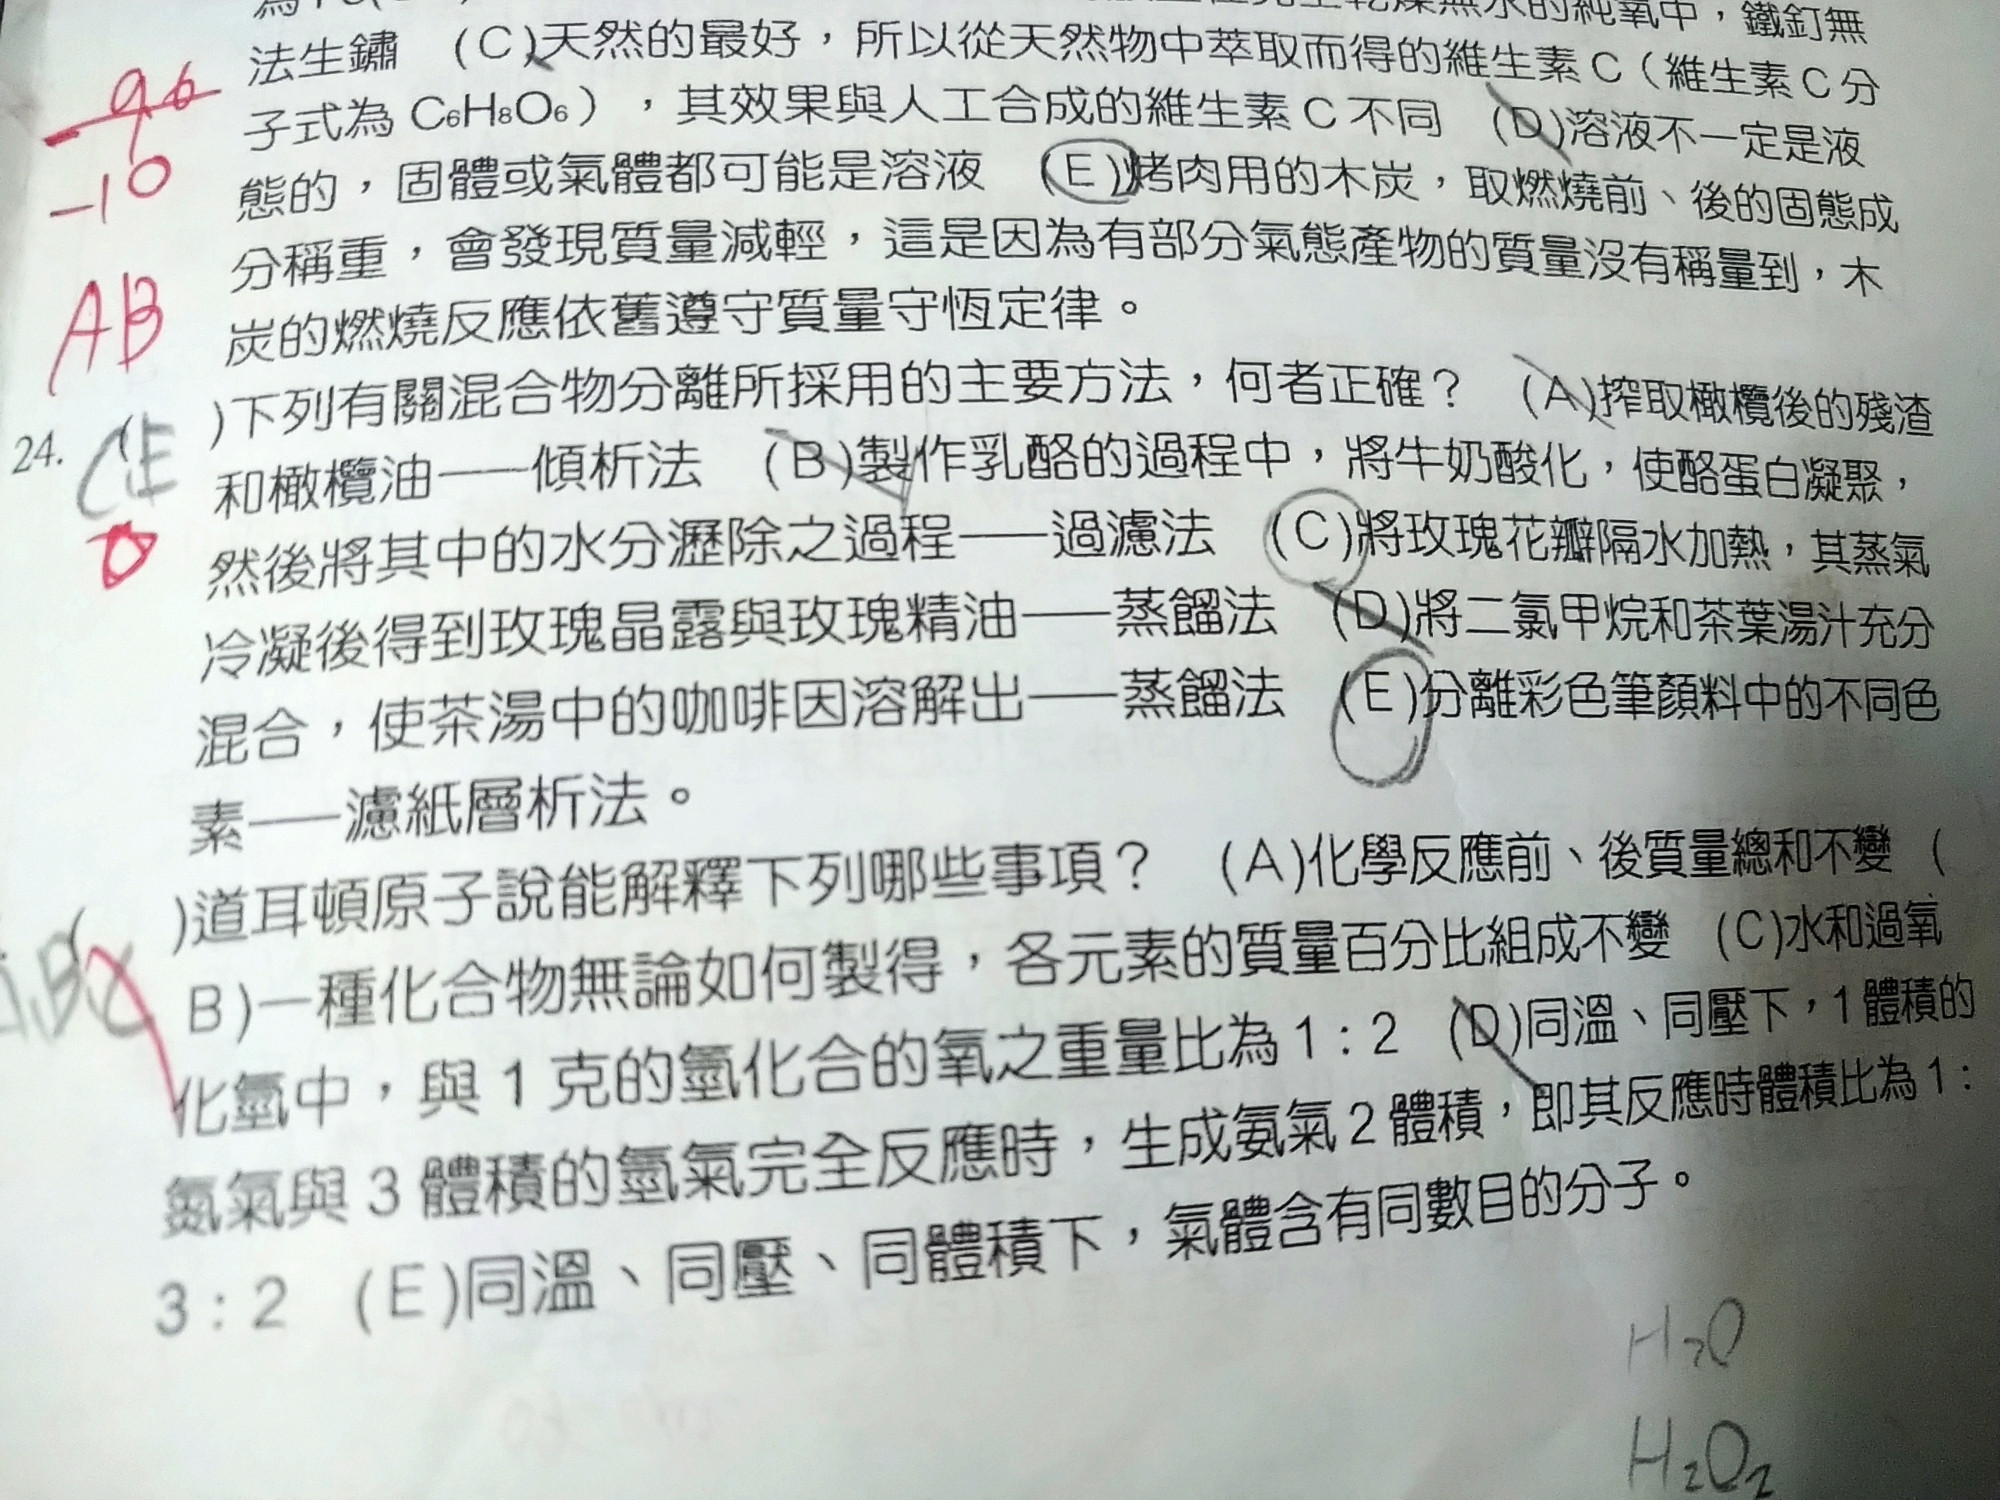 法生鏽 (C)天然的最好，所以從天然物中萃取而得的維生素C（維生素C分
-96
子式為 C₆H₈O₆），其效果與人工合成的維生素C不同 (D)溶液不一定是液
-10
態的，固體或氣體都可能是溶液 (E)烤肉用的木炭，取燃燒前、後的固態成
分稱重，會發現質量減輕，這是因為有部分氣態產物的質量沒有稱量到，木
AB
炭的燃燒反應依舊遵守質量守恆定律。
24. ( CE )下列有關混合物分離所採用的主要方法，何者正確？ (A)搾取橄欖後的殘渣
和橄欖油──傾析法 (B)製作乳酪的過程中，將牛奶酸化，使酪蛋白凝聚，
然後將其中的水分瀝除之過程──過濾法 (C)將玫瑰花瓣隔水加熱，其蒸氣
冷凝後得到玫瑰晶露與玫瑰精油──蒸餾法 (D)將二氯甲烷和茶葉湯汁充分
混合，使茶湯中的咖啡因溶解出──蒸餾法 (E)分離彩色筆顏料中的不同色
素──濾紙層析法。
( ABC )道耳頓原子說能解釋下列哪些事項？ (A)化學反應前、後質量總和不變 (
B)一種化合物無論如何製得，各元素的質量百分比組成不變 (C)水和過氧
化氫中，與1克的氫化合的氧之重量比為1：2 (D)同溫、同壓下，1體積的
氮氣與3體積的氫氣完全反應時，生成氨氣2體積，即其反應時體積比為1：
3：2 (E)同溫、同壓、同體積下，氣體含有同數目的分子。
H₂O
H₂O₂